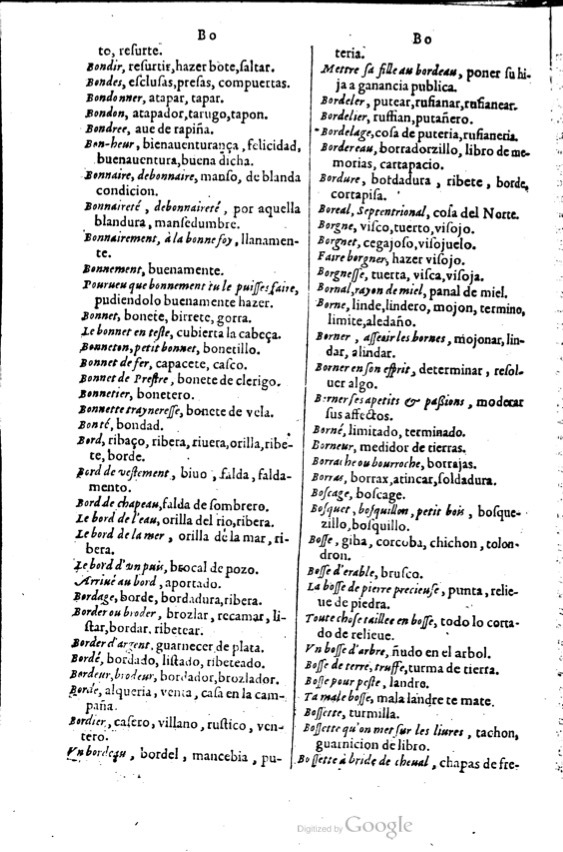 Bo
to, reſurte.
Bondir, reſurtir, hazer bote, ſaltar.
Bondes, eſcluſas, preſas, compuertas.
Bondonner, atapar, tapar.
Bondon, atapador, tarugo, tapon.
Bondree, aue de rapiña.
Bon-heur, bienauenturança, felicidad,
buenauentura, buena dicha.
Bonnaire, debonnaire, manſo, de blanda
condicion.
Bonnaireté, debonnaireté, por aquella
blandura, manſedumbre.
Bonnairement, à la bonne foy, llanamen-
te.
Bonnement, buenamente.
Pourueu que bonnement tu le puiſſes faire,
pudiendolo buenamente hazer.
Bonnet, bonete, birrete, gorra.
Le bonnet en teſte, cubierta la cabeça.
Bonneton, petit bonnet, bonetillo.
Bonnet de fer, capacete, caſco.
Bonnet de Preſtre, bonete de clerigo.
Bonnetier, bonetero.
Bonnette traynereſſe, bonete de vela.
Bonté, bondad.
Bord, ribaço, ribera, riuera, orilla, ribe-
te, borde.
Bord de veſtement, biuo, falda, falda-
mento.
Bord de chapeau, falda de ſombrero.
Le bord de l'eau, orilla del rio, ribera.
Le bord de la mer, orilla de la mar, ri-
bera.
Le bord d'vn puis, brocal de pozo.
Arriué au bord, aportado.
Bordage, borde, bordadura, ribera.
Border ou broder, brozlar, recamar, li-
ſtar, bordar, ribetear.
Border d'argent, guarnecer de plata.
Bordé, bordado, liſtado, ribeteado.
Bordeur, brodeur, bordador, brozlador.
Borde, alqueria, venta, caſa en la cam-
paña.
Bordier, caſero, villano, ruſtico, ven-
tero.
Vn bordeau, bordel, mancebia, pu-
Bo
teria.
Mettre ſa fille au bordeau, poner ſu hi-
ja a ganancia publica.
Bordeler, putear, rufianar, rufianear.
Bordelier, ruffian, putañero.
Bordelage, coſa de puteria, rufianeria.
Bordereau, borradorzillo, libro de me-
morias, cartapacio.
Bordure, bordadura, ribete, borde,
cortapiſa.
Boreal, Septentrional, coſa del Norte.
Borgne, viſco, tuerto, viſojo.
Borgnet, cegajoſo, viſojuelo.
Faire borgner, hazer viſojo.
Borgneſſe, tuerta, viſca, viſoja.
Bornal, rayon de miel, panal de miel.
Borne, linde, lindero, mojon, termino,
limite, aledaño.
Borner, aſſeair les bornes, mojonar, lin-
dar, alindar.
Borner en ſon eſprit, determinar, reſol-
uer algo.
Borner ſes apetits & paſſions, moderar
ſus affectos.
Borné, limitado, terminado.
Borneur, medidor de tierras.
Borrache ou bourroche, borrajas.
Borras, borrax, atincar, ſoldadura.
Boſcage, boſcage.
Boſquet, boſquillon, petit bois, boſque-
zillo, boſquillo.
Boſſe, giba, corcoba, chichon, tolon-
dron.
Boſſe d'erable, bruſco.
La boſſe de pierre precieuſe, punta, relie-
ue de piedra.
Toute choſe taillee en boſſe, todo lo corta-
do de relieue.
Vn boſſe d'arbre, ñudo en el arbol.
Boſſe de terre, truffe, turma de tierra.
Boſſe pour peſte, landre.
Ta male boſſe, mala landre te mate.
Boſſette, turmilla.
Boſſette qu'on met ſur les liures, tachon,
guarnicion de libro.
Boſſette à bride de cheual, chapas de fre-
Digitized by Google